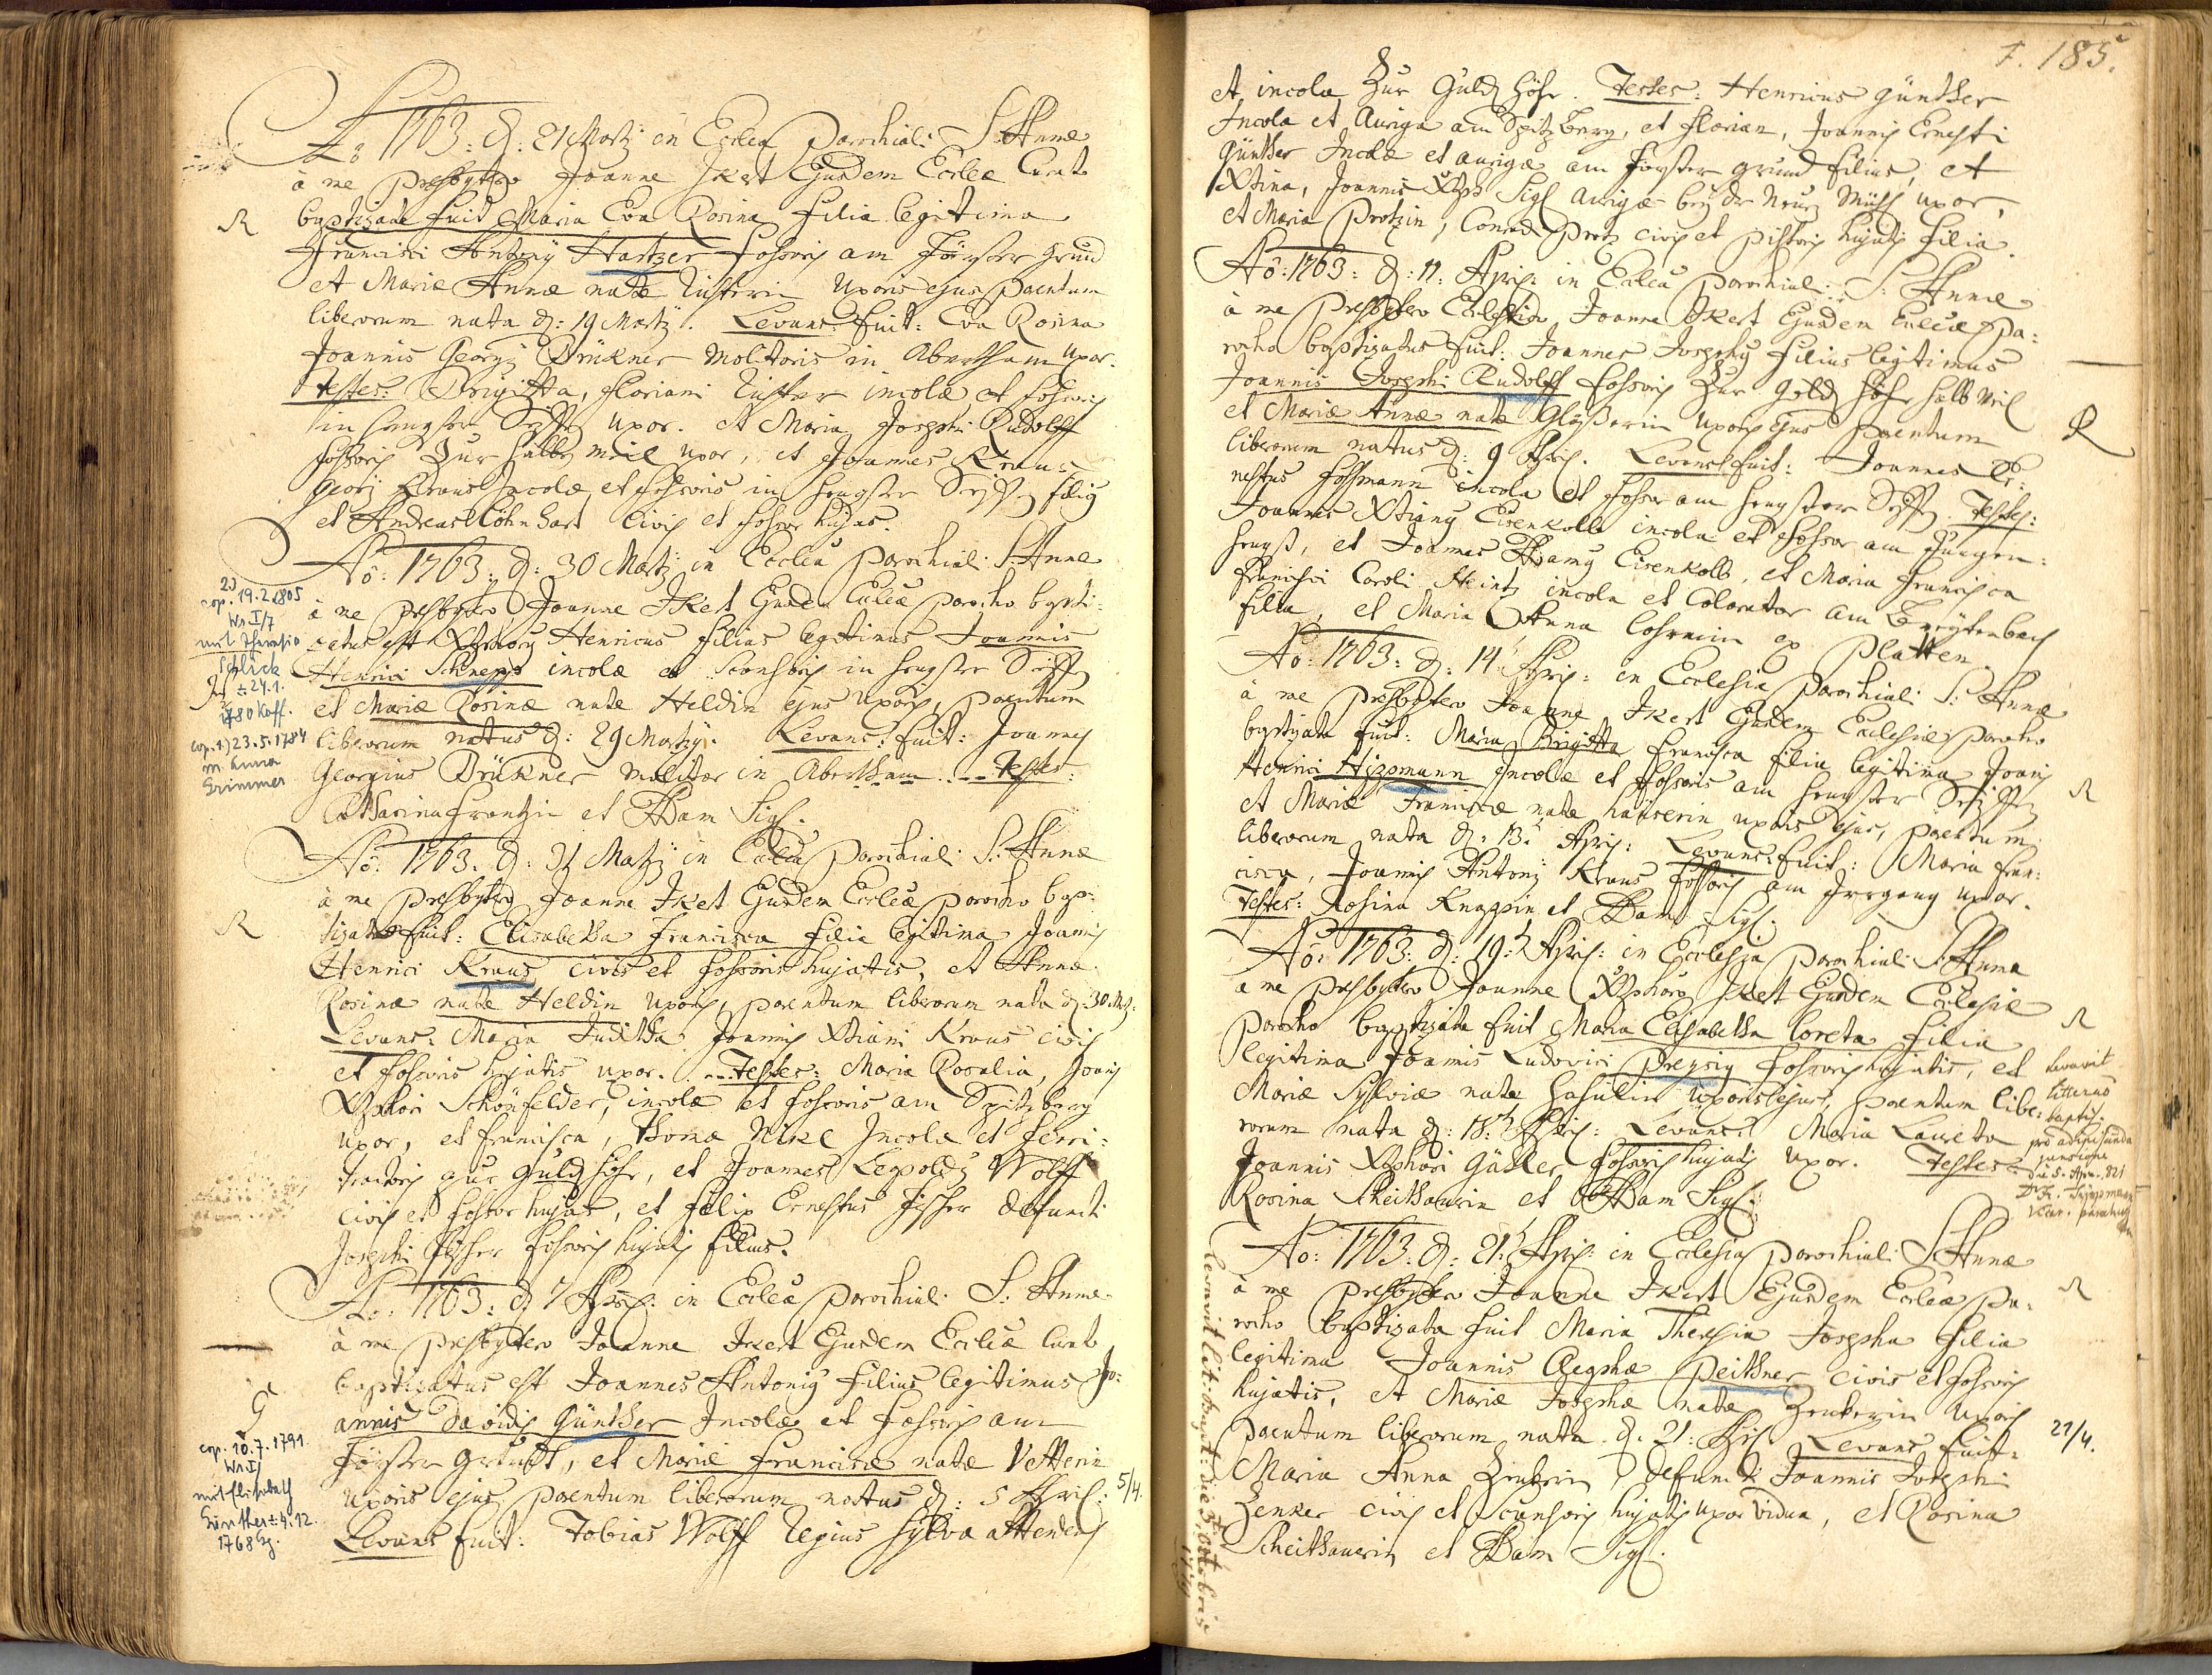 Ao 1763: d: 21 Martij in Ecclea Parochiali S. Annæ
à me Presbytero Joanne Ikert Ejusdem Eccleæ Curato
R
baptizata fuit Maria Eva Rosina filia legitima
Francisci Antonij Hartzer fossoris am Förster grund
et Mariæ Annæ natæ Uxoris ejus parentum
liberorum nata d: 19 Martij. Levans fuit: Eva Rosina
Joannis Georgij Brükner Molitoris in Abertham Uxor.
Testes: Brigitta, Floriani incolæ et fossoris
in hengster Uxor. et Maria Josephi Rudolff
fossoris Zur halbe meil uxor, et Joannes Kraus
Georij Kraus Incolæ et fossoris in hengster filius
et Andreas Löhnhart Civis et fossor hujas.
Aô: 1763: d: 30 Martij in Ecclea Parochiali S. Annæ
à me Presbytero Joanne Ikert Ejusdem Eccleæ Parocho bapti-
zatus est Henricus filius legitimus Joannis
Henrici Schnepp incolæ et in hengster
et Mariæ Rosinæ natæ Heldin ejus Uxoris, parentum
liberorum natus d: 29 Martij. Levans: fuit: Joannes
Georgius Brükner Molitor in Abertham. -- Testes:
Catharina Frantzin et Adam Sigl.
2)
cop. 19.2.1805
Ws I/7
mit Theresia
Schlick
± 24.1.
1780
cop. 1.) 23.5.1784
m. Anna
Grimmer
Aô: 1763. d: 31 Martij in Ecclea Parochiali S. Annæ
à me Presbytero Joanne Ikert Ejusdem Eccleæ Parocho bap-
R
tizata fuit: Elisabetha Francisca filia legitima Joannis
Henrici Kraus Civis et fossoris hujatis, et Annæ
Rosinæ natæ Heldin Uxoris, parentum liberorum nata d. 30. Mtz:
Levans: Maria Juditha Joannis Xtiani Kraus civis
et fossoris hujatis uxor. --- Testes: Maria Rosalia, Joannis
Xtphori Schönfelder, incolæ et fossoris am Spitzberg
uxor, et Francisca, Thomæ Nikl Incolæ et ferri-
zur Guld höhe, et Joannes Leopoldus Wolff
civis et fossor hujas, et Felix Ernestus Fischer defuncti
Josephi Fischer fossoris hujatis filius.
Ao: 1763: d: 7 Apris: in Ecclea Parochiali S. Annæ
à me Presbytero Joanne Ikert Ejusdem Eccleæ Curato
baptizatus est Joannes Antonius filius legitimus Jo-
annis Davidis Günther Incolæ et fossoris am
Förster grundt, et Mariæ Franciscæ natæ Vetterin
Uxoris ejus parentum liberorum natus d: 5 Apris: 5/4.
Levans fuit: Tobias Wolff Regius sylvæ attendens
cop. 10.7.1791.
Ws I/
mit Elisabeth
Günther ± 4.12.
1768
F. 185.
et incola Zur Guld höhe. Testes: Henricus Günther
Incola et Auriga am Spitzberg, et Florian, Joannis Ernesti
Günther Incolæ et aurigæ am Forster grund filius, et
Xtina, Joannis Xtoph Sigl aurigæ bey der Neuen Mühl uxor,
et Maria Protzin, Conradi Protz civis et pistoris hujatis filia.
Aô: 1763: d: 11: Apris: in Ecclea Parochiali: S: Annæ
à me Presbytero Joanne Ikert Ejusdem Eccleæ Pa-
rocho baptizatus fuit: Joannes Josephus filius legitimus
Joannis Josephi Rudolff fossoris Zur Guld höhe halb Meil
et Mariæ Annæ natæ Gläserin Uxoris ejus parentum
R
liberorum natus d: 9 Apris. Levans fuit: Joannes Er-
nestus Hoffmann incola et fossor am hengster. Testes:
Joannes Xtianus Eisenkolb incola et fossor am
hengst, et Joannes Adamus Eisenkolb, et Maria Francisca
Francisci Caroli Heintz incola et Colorator am Breytenbach
filia, et Maria Anna ex Platten.
Ao: 1763: d: 14 Apris: in Ecclesia Parochiali S: Annæ
à me Presbytero Joanne Ikert Ejusdem Ecclesiæ Parocho
baptizata fuit: Maria Brigitta Francisca filia legitima Joannis
Henrici Hizpmann Incolæ et fossoris am hengster
R
et Mariæ Franciscæ natæ haüserin uxoris ejus, parentum
liberorum nata d: 13. Apris: Levans fuit: Maria Fran-
cisca, Joannis Antonij Kraus fossoris am Irrgang uxor.
Testes: Rosina Knappin et Adam Sigl.
Aô: 1763: d: 19: Apris: in Ecclesia Parochiali S. Annæ
a me Presbytero Joanne Xtphoro Ikert Ejusdem Ecclesiæ
Parocho baptizata fuit Maria Elisabetha Loreta filia
R
legitima Joannis Ludovici Preysig fossoris hujatis, et
Mariæ Sylviæ natæ Uxoris ejus, parentum libe-
rorum nata d: 18: Apris: Levans: Maria Laureta
Joannis Xtphori Gäßler fossoris hujatis Uxor. Testes
Rosina Scheithauerin et Adam Sigl.
levavit
litteras
baptis.
pro adipiscenda
pensione
5. 821
Ao: 1763: d: 21: Apris: in Ecclesia Parochiali S. Annæ
à me Presbytero Joanne Ikert Ejusdem Eccleæ Pa-
R
rocho baptizata fuit Maria Theresia Josepha filia
legitima Joannis Josephæ Peithner civis et fossoris
hujatis, et Mariæ Josephæ natæ Zenkerin Uxoris
parentum liberorum nata d. 21: Apris Levans fuit:
21/4.
Maria Anna Zenkerin, defuncti Joannis Josephi
Zenker civis et hujatis uxor vidua, et Rosina
Scheithauerin et Adam Sigl.
Levavit lit: bapt: die 3. Octobris